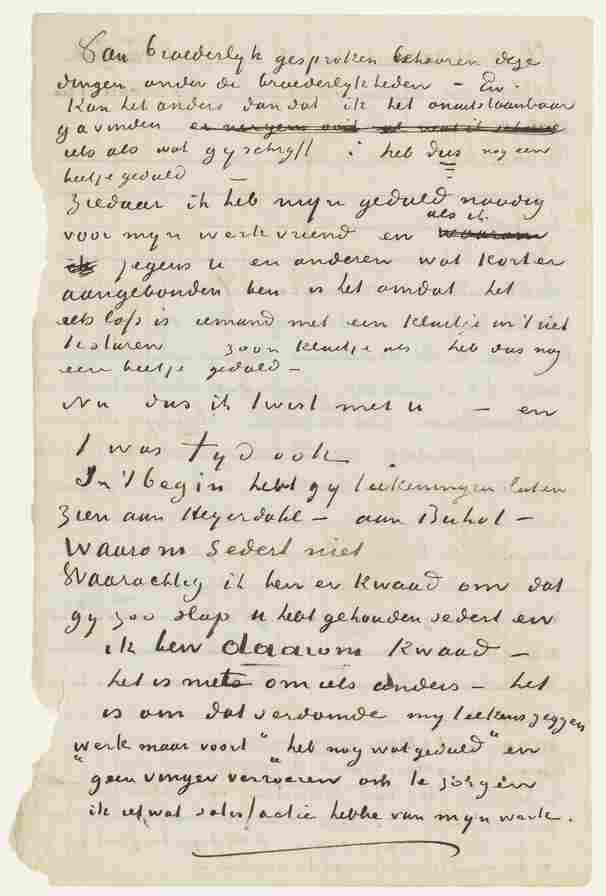 Van broederlyk gesproken behooren deze
dingen onder de broederlykheden – En
Kan het anders dan dat ik het onuitstaanbaar
ga vinden
iets als wat gy schryft : heb dus nog een
beetje geduld
Ziedaar ik heb myn geduld noodig
als ik
voor myn werk vriend en waarom
ik jegens u en anderen wat korter
aangebonden ben is het omdat het
iets laps is iemand met een kluitje in 't riet
te sturen zoon kluitje als heb dus nog
een beetje geduld –
Nu dus ik twist met u – en
t was tyd ook
In 't begin hebt gy teekeningen laten
zien aan Heyerdahl – aan Buhot –
Waarom sedert niet
Waarachtig ik ben er kwaad om dat
gy zoo slap u hebt gehouden sedert en
ik ben daarom kwaad –
het is niets om iets anders – het
is om dat verdomde my telkens zeggen
werk maar voort " heb nog wat geduld " en
" geen vinger verroeren om te zorgen
ik iet wat satisfactie hebbe van myn werk.